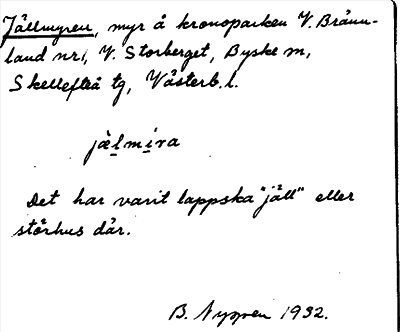 Jällmyren, myr å kronoparken V. Bränn-
land nr 1, V. Storberget, Byske sn,
Skellefteå tg, Västerb. l.
jälmira
Det har varit lappska "jäll" eller
störhus där.
B. Nygren 1932.